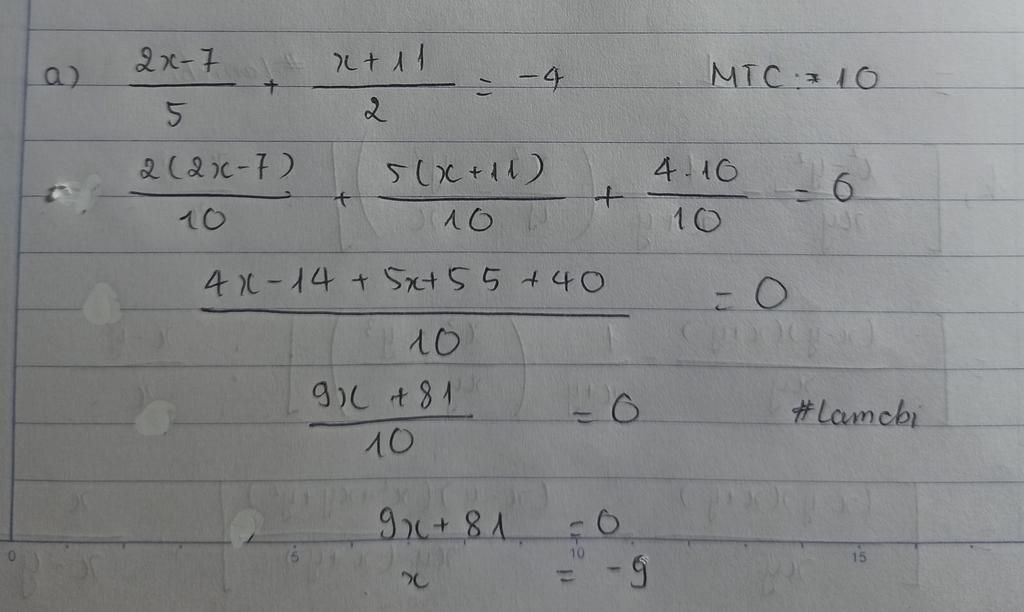 a) (2x-7)/5 + (x+11)/2 = -4 MTC: 10
2(2x-7)/10 + 5(x+11)/10 + 4.10/10 = 0
(4x-14+5x+55+40)/10 = 0
(9x+81)/10 = 0 #Lamcbi
9x+81 = 0
0 5 10 15
x = -9